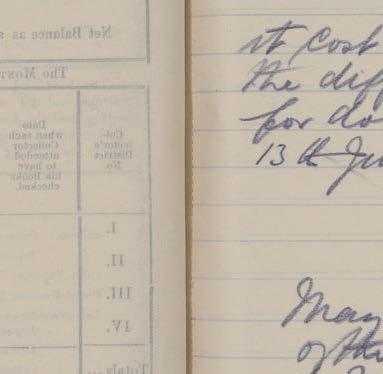 Net Balance as
The Mon
Date
when each
Collector
attended
to have
his Books
checked.
Col-
lector's
District
No.
I.
II.
III.
IV.
Totals
it cost
the dif
for do
13th Ju
May
of the